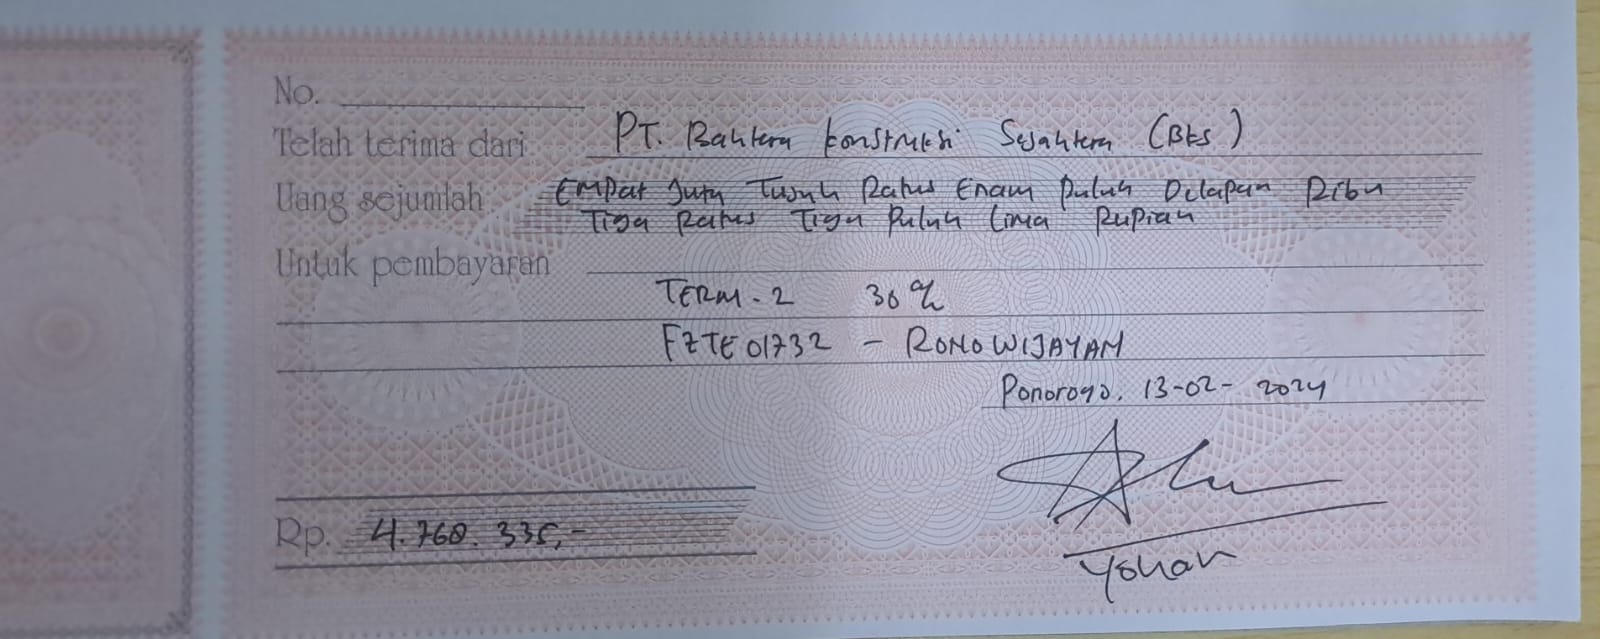 No.
Telah terima dari PT. Bahtera Konstruksi Sejahtera (BKS)
Uang sejumlah Empat Juta Tujuh Ratus Enam Puluh Delapan Ribu
Tiga Ratus Tiga Puluh Lima Rupiah
Untuk pembayaran
TERM-2 30%
FZTE01732 - RONOWIJAYAN
Ponorogo, 13-02-2024
Rp. 4.768.335,-
Yohan